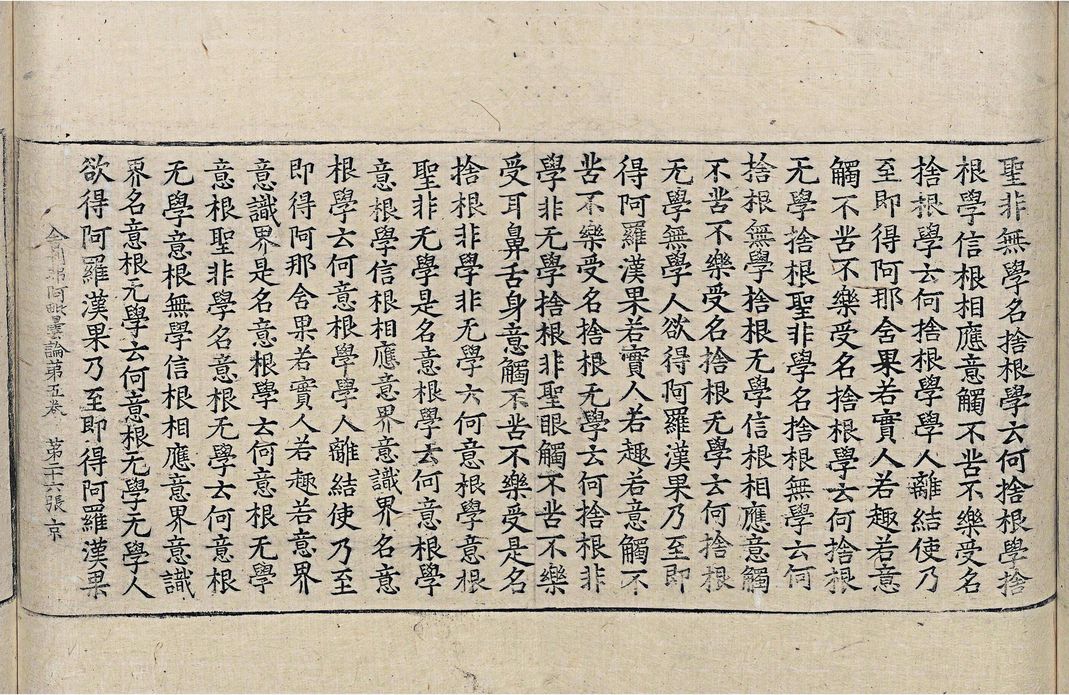 聖非無學名捨根學云何捨根學捨
根學信根相應意觸不苦不樂受名
捨根學云何捨根學學人離結使乃
至即得阿那舍果若實人若趣若意
觸不苦不樂受名捨根學云何捨根
无學捨根聖非學名捨根無學云何
捨根無學捨根无學信根相應意觸
不苦不樂受名捨根无學云何捨根
无學無學人欲得阿羅漢果乃至即
得阿羅漢果若實人若趣若意觸不
苦不樂受名捨根无學云何捨根非
學非无學捨根非聖眼觸不苦不樂
受耳鼻舌身意觸不苦不樂受是名
捨根非學非无學云何意根學意根
聖非无學是名意根學云何意根學
意根學信根相應意界意識界名意
根學云何意根學學人離結使乃至
即得阿那舍果若實人若趣若意界
意識界是名意根學云何意根无學
意根聖非學名意根无學云何意根
无學意根無學信根相應意界意識
界名意根无學云何意根无學无學人
欲得阿羅漢果乃至即得阿羅漢果
舍利弗阿毗曇論第五卷 第二十六張 京